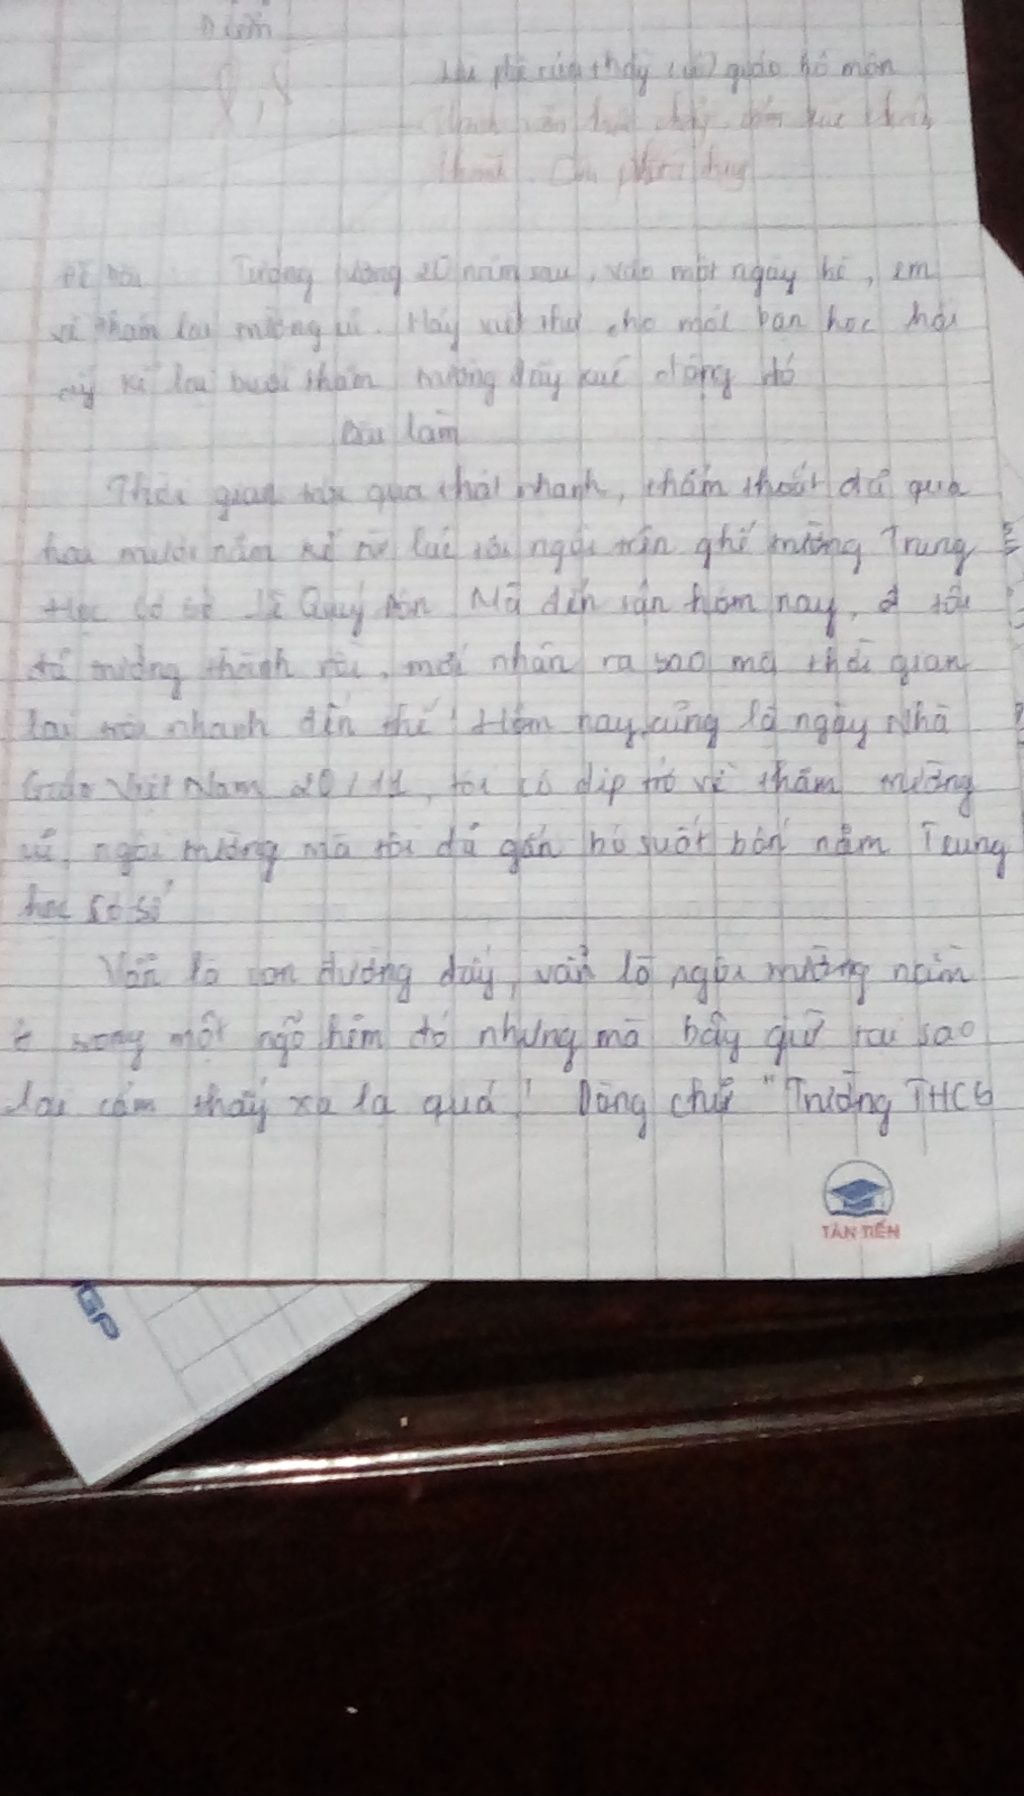 Điểm
Lời phê của thầy (cô) giáo bộ môn
8,8
Hành văn trôi chảy, cảm xúc chân
thành. Cần phát huy
Đề bài Tưởng tượng 20 năm sau, vào một ngày hè, em
về thăm lại trường cũ. Hãy viết thư cho một bạn học hồi
ấy kể lại buổi thăm trường đầy xúc động đó
Bài làm
Thời gian trôi qua thật nhanh, thấm thoát đã qua
hai mươi năm kể từ lúc tôi ngồi trên ghế trường Trung
Học Cơ sở Lê Quý Đôn Mà đến tận hôm nay, tôi
đã trưởng thành rồi, mới nhận ra sao mà thời gian
lại trôi nhanh đến thế! Hôm nay cũng là ngày Nhà
Giáo Việt Nam 20/11, tôi có dịp trở về thăm trường
cũ, ngôi trường mà tôi đã gắn bó suốt bốn năm Trung
học cơ sở
Vẫn là con đường đấy, vẫn là ngôi trường nằm
ở trong một ngõ hẻm đó nhưng mà bây giờ tại sao
lại cảm thấy xa lạ quá! Dòng chữ "Trường THCS
TÂN TIẾN
GP